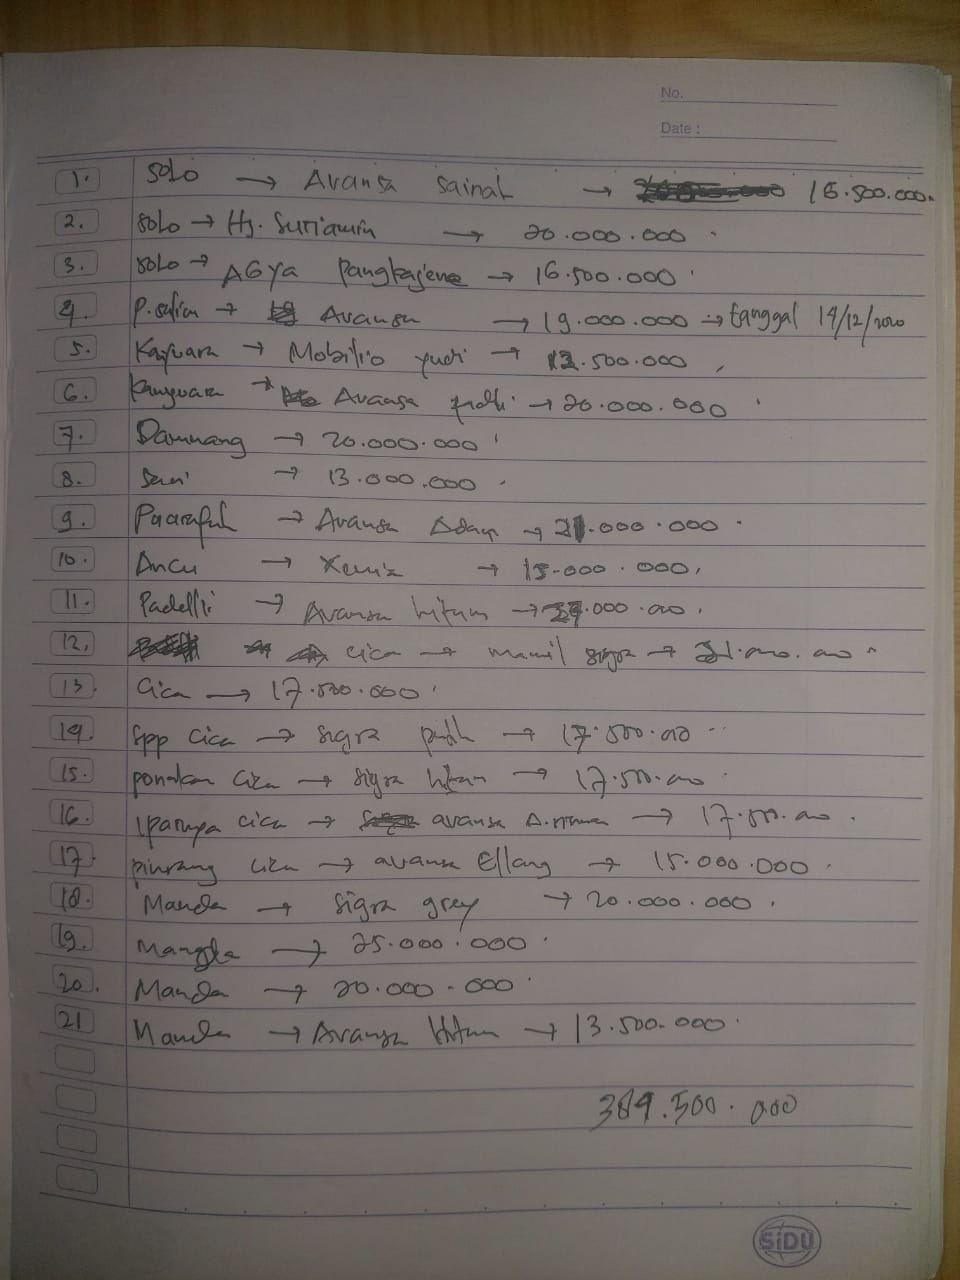 No.
Date :
1. Solo → Avansa Sainal → 16.500.000.
2. Solo → Hj. Suriamin → 20.000.000
3. Solo → AGya Pangkajene → 16.500.000
4. P. Salim → Avansa → 19.000.000 → tanggal 14/12/2020
5. → Mobilio yudi → 12.500.000
6. → Avansa → 20.000.000
7. Damnang → 20.000.000
8. → 13.000.000
9. → Avansa → 21.000.000
10. Ancu → Xenia → 15.000.000
11. Padelli → Avansa hitam → .000.000
12. cica → sigra →
13. Cica → 17.500.000
14. Spp Cica → sigra putih → 17.500.000
15. ponakan Cica → Sigra hitam → 17.500.000
16. Iparnya cica → avansa → 17.500.000
17. pinrang cica → avansa Ellang → 15.000.000
18. Manda → Sigra grey → 20.000.000
19. → 25.000.000
20. Manda → 20.000.000
21 Manda → Avansa Hitam → 13.500.000
384.500.000
SiDU